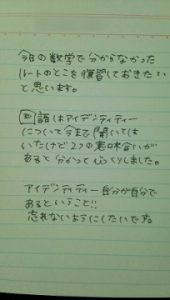 今日の数学で分からなかった
ルートのとこを復習しておきたい
と思います。
国語はアイデンティティー
について今まで聞いては
いたけど2つの意味合いが
あると分かってびっくりしました。
アイデンティティー 自分が自分で
あるということ!!
忘れないようにしたいです。